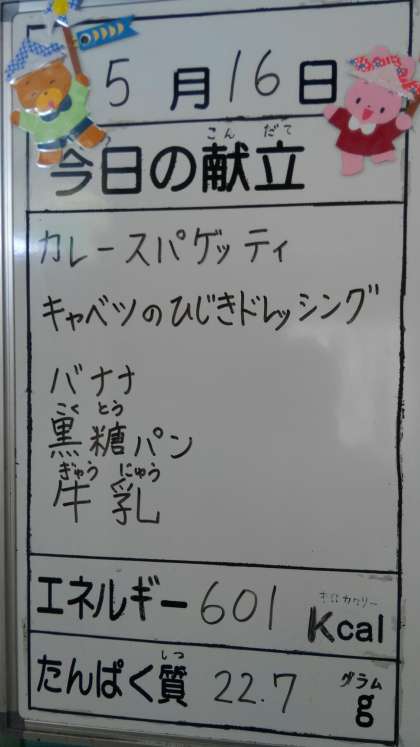 5月16日
こんだて
今日の献立
カレースパゲッティ
キャベツのひじきドレッシング
バナナ
こくとう
黒糖パン
ぎゅうにゅう
牛乳
キロカロリー
エネルギー 601 Kcal
しつ グラム
たんぱく質 22.7 g